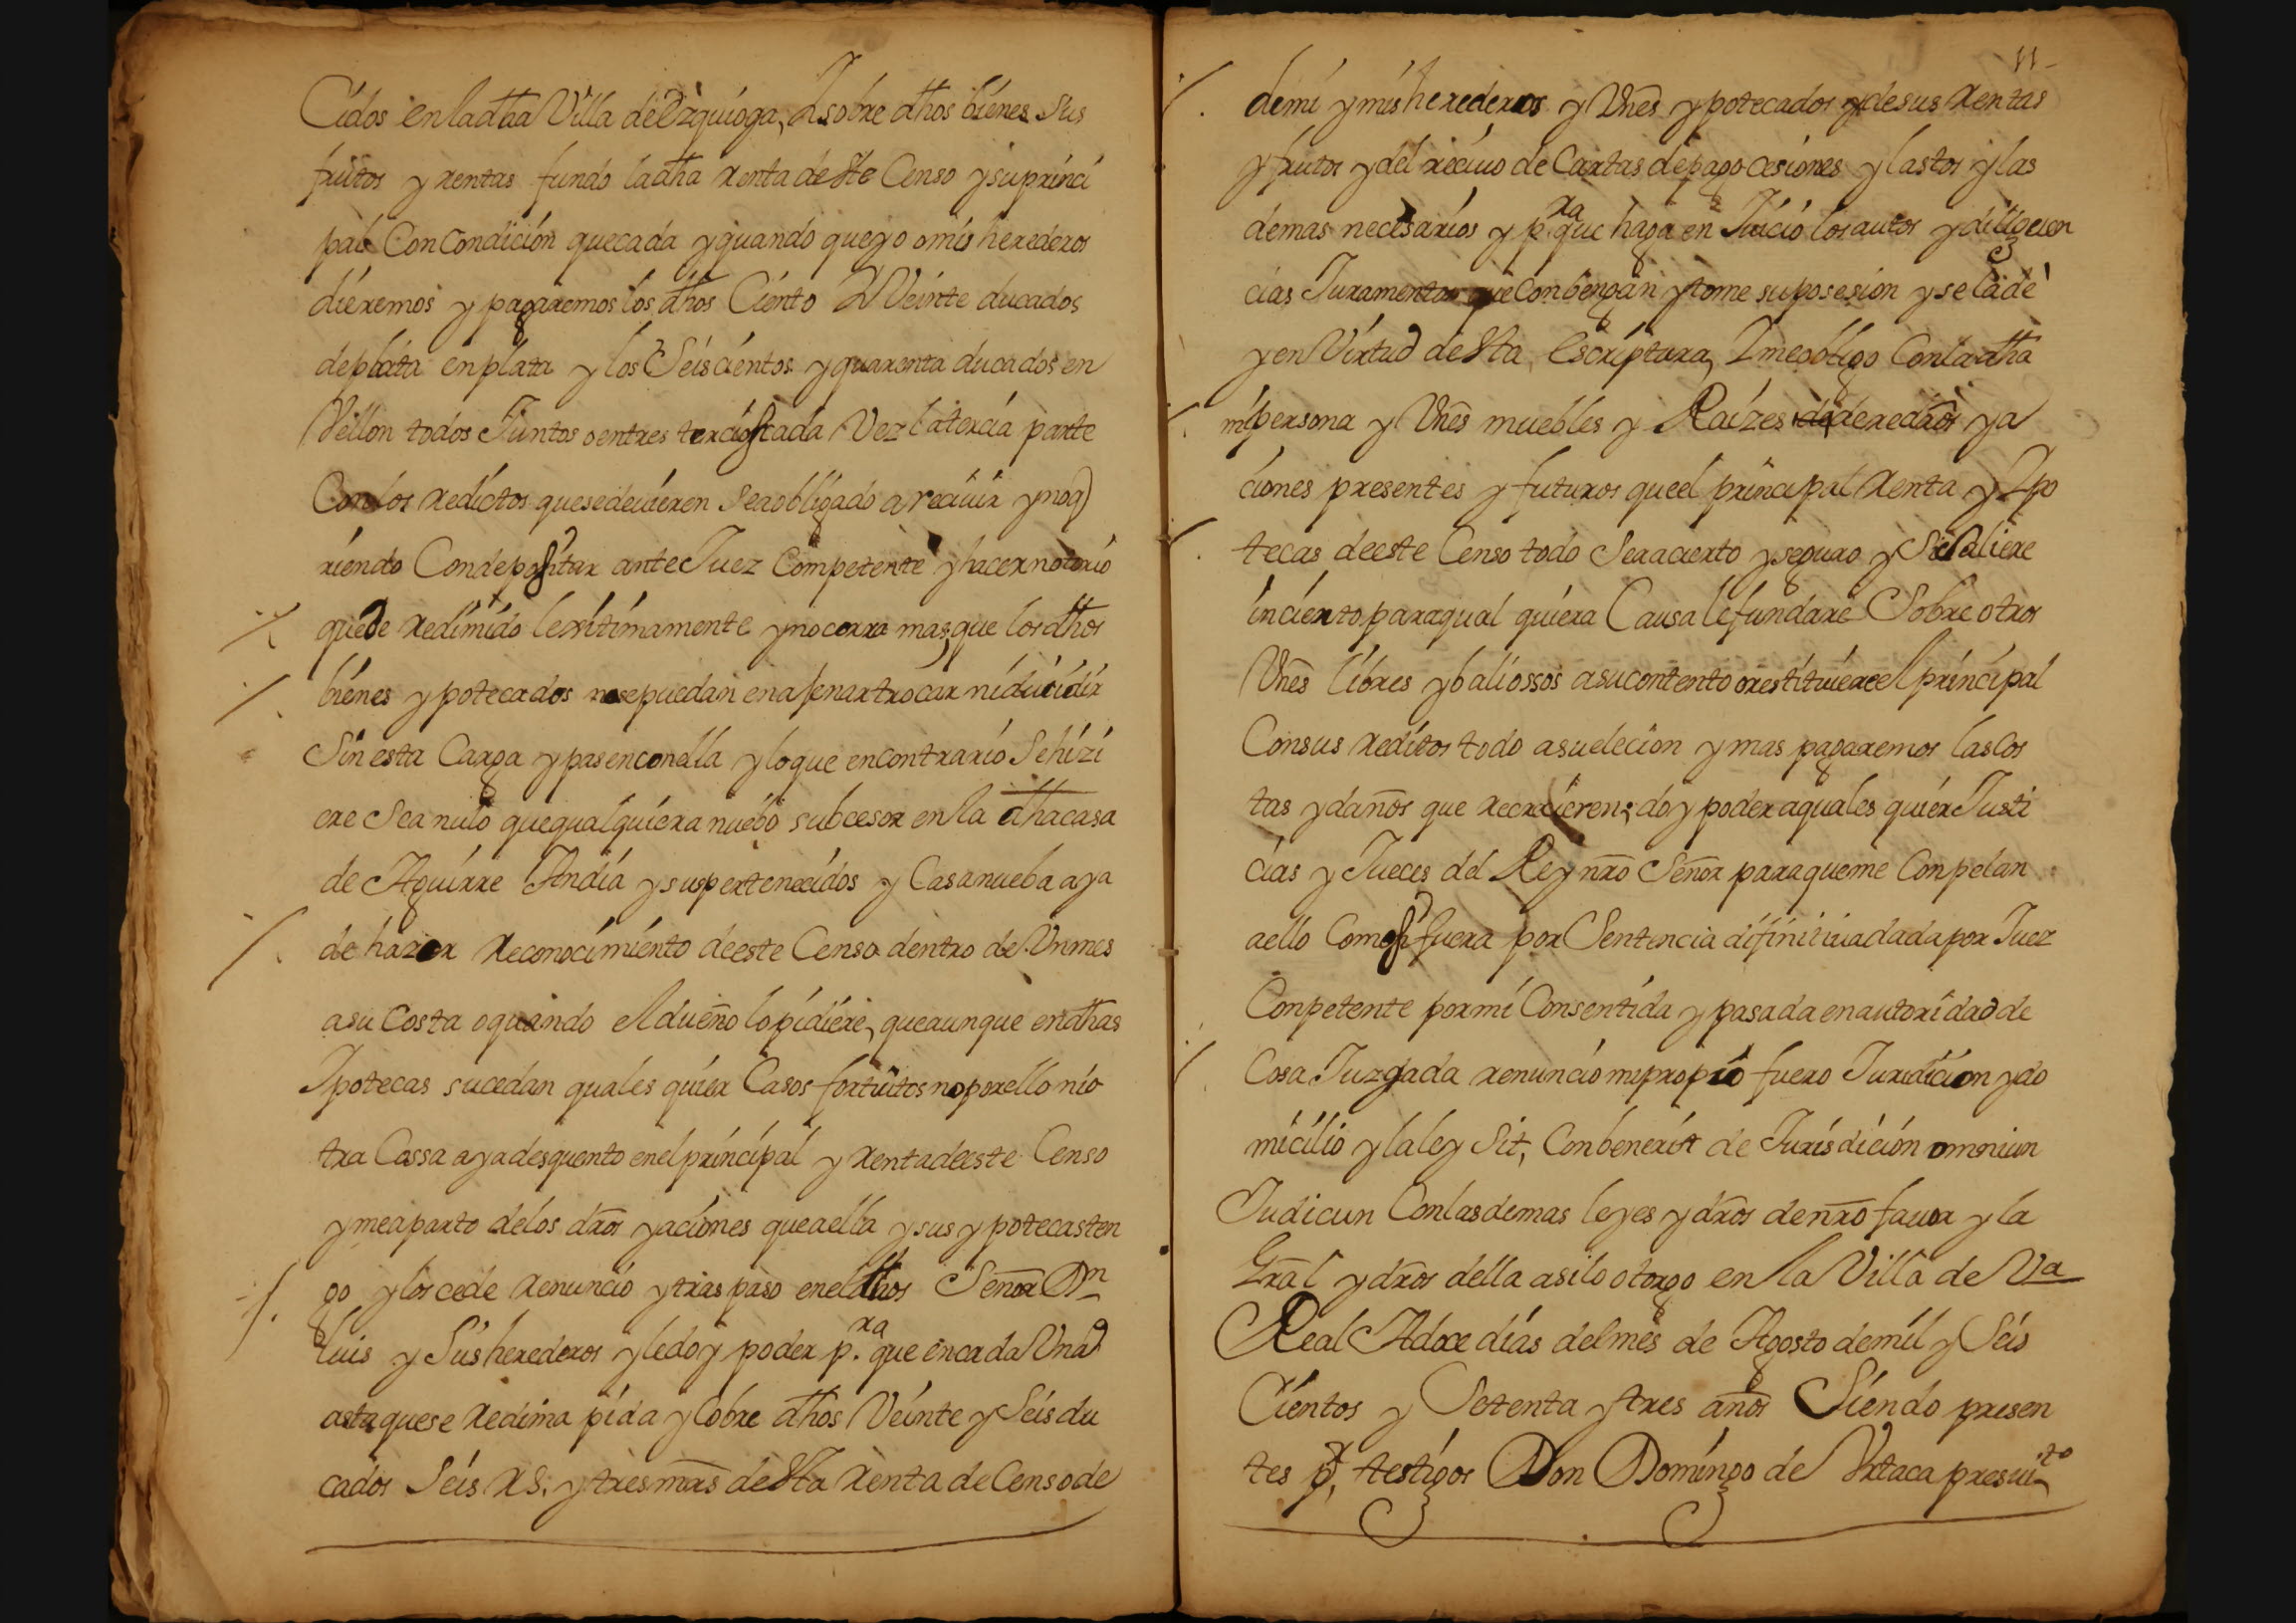 Cidos en la dha Villa de Ezquioga, Y sobre dhos bienes Sus
frutos y rentas fundo la dha renta de Ste Censo y su princi
pal Con Condicion que cada y quando que yo o mis herederos
dieremos y pagaremos los dhos Ciento Y Veinte ducados
de plata en plata y los Seiscientos y quarenta ducados en
Vellon todos Juntos o en tres tercios cada Vez la tercia parte
Con los redictos que se devieren Sea obligado a recivir y no q
riendo Con depositar ante Juez Competente y hacer notorio
quede redimido lexitimamente y no corra mas, que los dhos
bienes ypotecados no se puedan enajenar trocar ni dividir
Sin esta Carga y pasen con ella y lo que en contrario Se hizi
ere Sea nulo que qualquiera nuebo subcesor en la dha casa
de Aguirre Andia y sus pertenecidos y Casanueba aya
de hazer reconocimiento de este Censo dentro de Un mes
a su Costa o quando el dueño lo pidiere, que aunque en dhas
Ipotecas sucedan quales quier Casos fortuitos no por ello ni o
tra Cassa aya desquento en el principal y renta de este Censo
y me aparto de los dros y aciones que a ella y sus ypotecas ten
go y los cede renuncio y traspaso en el dhos Señor Dn
Luis y Sus herederos y le doy poder p.ra que en cada Un a
asta que se redima pida y Cobre dhos Veinte y Seis du
cados Seis rs. y tres mrs de Sta renta de Censo de
11
de mi y mis herederos y Vnes ypotecados y de sus rentas
y frutos y del recivo de Cartas de pago cesiones y lastos y las
demas necesarios y p.ra que haga en Juicio los autos y diligen
cias Juramentos que Conbengan y tome su posesion y se la dè
y en Virtud de Sta Escriptura, I me obligo Con la dha
mi persona y Vnes muebles y Raizes de derechos y a
ciones presentes y futuros que el principal renta y Ipo
tecas de este Censo todo Sera cierto y seguro y Si Saliere
incierto para qual quiera Causa le fundarè Sobre otros
Vnes libres y baliossos a su contento o restituiere el principal
Con sus reditos todo a su elecion y mas pagaremos las Cos
tas y daños que recracieren; doy poder a quales quier Justi
cias y Jueces del Rey nro Señor para que me Conpelan
a ello Como si fuera por Sentencia difinitiva dada por Juez
Conpetente por mi Consentida y pasada en autoridad de
Cosa Juzgada renuncio mi propio fuero Juridicion y do
micilio y la ley Sit, Conbenerit de Jurisdicion omniun
Judicun Con las demas leyes y dros de nro favor y la
Gral y dros della asi lo otorgo en la Villa de Va
Real A doce dias del mes de Agosto de mil y Seis
Cientos y Setenta y tres años Siendo presen
tes p.r testigos Don Domingo de Vrtaca presvi.to